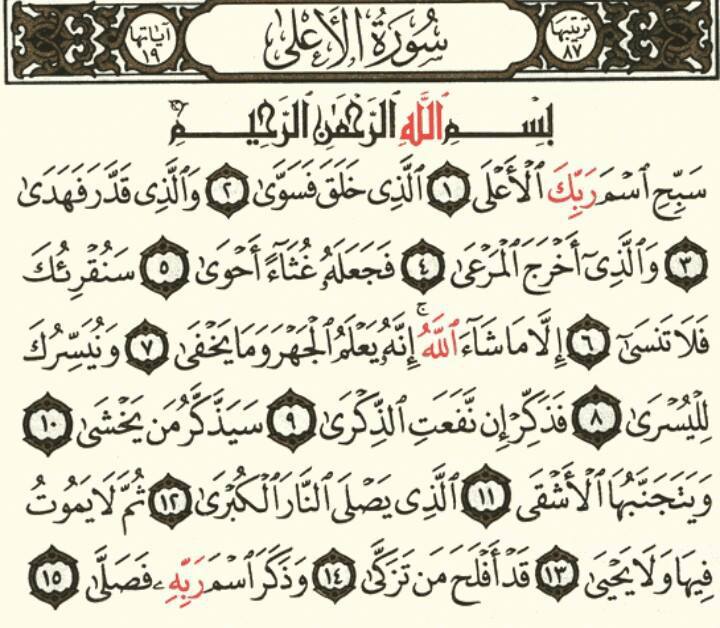 ترتيبها ٨٧ سُورَةُ الأَعْلَى آياتها ١٩
بِسْمِ ٱللَّهِ ٱلرَّحْمَٰنِ ٱلرَّحِيمِ
سَبِّحِ ٱسْمَ رَبِّكَ ٱلْأَعْلَى ١ ٱلَّذِى خَلَقَ فَسَوَّىٰ ٢ وَٱلَّذِى قَدَّرَ فَهَدَىٰ
٣ وَٱلَّذِىٓ أَخْرَجَ ٱلْمَرْعَىٰ ٤ فَجَعَلَهُۥ غُثَآءً أَحْوَىٰ ٥ سَنُقْرِئُكَ
فَلَا تَنسَىٰٓ ٦ إِلَّا مَا شَآءَ ٱللَّهُ ۚ إِنَّهُۥ يَعْلَمُ ٱلْجَهْرَ وَمَا يَخْفَىٰ ٧ وَنُيَسِّرُكَ
لِلْيُسْرَىٰ ٨ فَذَكِّرْ إِن نَّفَعَتِ ٱلذِّكْرَىٰ ٩ سَيَذَّكَّرُ مَن يَخْشَىٰ ١٠
وَيَتَجَنَّبُهَا ٱلْأَشْقَى ١١ ٱلَّذِى يَصْلَى ٱلنَّارَ ٱلْكُبْرَىٰ ١٢ ثُمَّ لَا يَمُوتُ
فِيهَا وَلَا يَحْيَىٰ ١٣ قَدْ أَفْلَحَ مَن تَزَكَّىٰ ١٤ وَذَكَرَ ٱسْمَ رَبِّهِۦ فَصَلَّىٰ ١٥